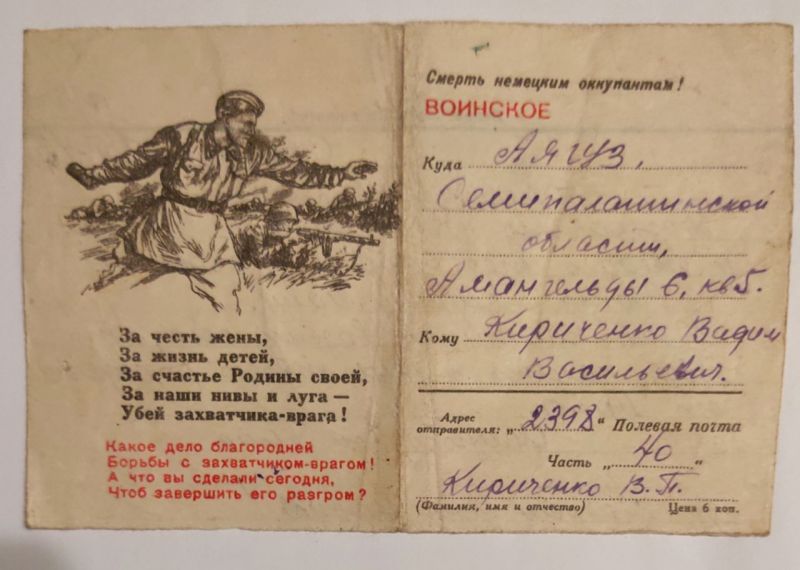 За честь жены,
За жизнь детей,
За счастье Родины своей,
За наши нивы и луга —
Убей захватчика-врага!
Какое дело благородней
Борьбы с захватчиком-врагом!
А что вы сделали сегодня,
Чтоб завершить его разгром?
Смерть немецким оккупантам!
ВОИНСКОЕ
Куда Аягуз,
Семипалатинской
области,
Амангельды 6, кв 6.
Кому Кириченко Вадим
Васильевич.
Адрес отправителя: „2398“ Полевая почта
Часть „40“
Кириченко В.П.
(Фамилия, имя и отчество) Цена 6 коп.